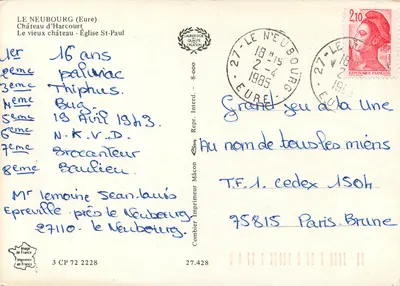 LE NEUBOURG (Eure)
Château d'Harcourt
Le vieux château - Église St-Paul
1er 16 ans
2ème paluviac
3ème Thiphus
4ème Bug
5ème 19 Avril 1943
6ème N.K.V.D.
7ème Brocanteur
8ème Baulieu
Mr Lemoine Jean-Louis
Epreville-près le Neubourg
27110 - le Neubourg.
3 CP 72 2228
27.428
Combier Imprimeur Mâcon
Repr. Interd. - 8-000
27 - LE NEUBOURG -
18 H 15
2-4
1985
EURE
27 - LE NEUBOURG
2,10
Grand jeu à la Une
Au nom de tous les miens
T.F.1. cedex 150h
95815 Paris-Brune